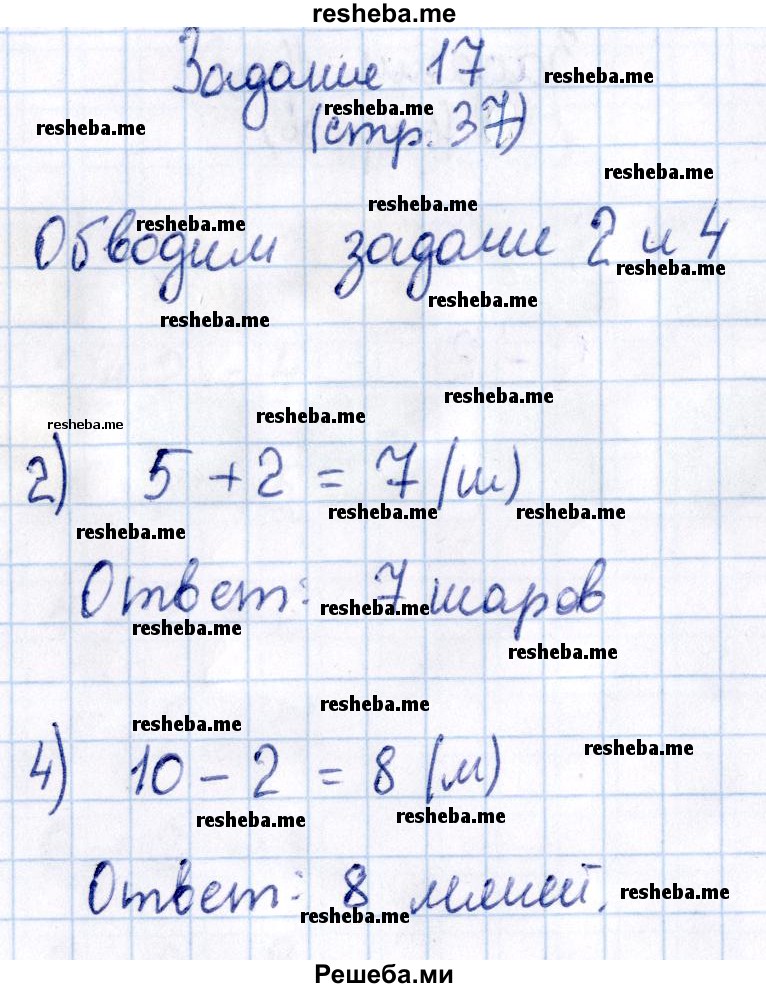 resheba.me
Задание 17
resheba.me
resheba.me
resheba.me
(стр. 37)
resheba.me
resheba.me
resheba.me
Обводим задание 2 и 4
resheba.me
resheba.me
resheba.me
resheba.me
resheba.me
resheba.me
2) 5 + 2 = 7 (ш)
resheba.me resheba.me
resheba.me
Ответ: 7 шаров
resheba.me
resheba.me
resheba.me
resheba.me
resheba.me
resheba.me
4) 10 - 2 = 8 (м)
resheba.me resheba.me
Ответ: 8 .
resheba.me
resheba.me
Решеба.ми